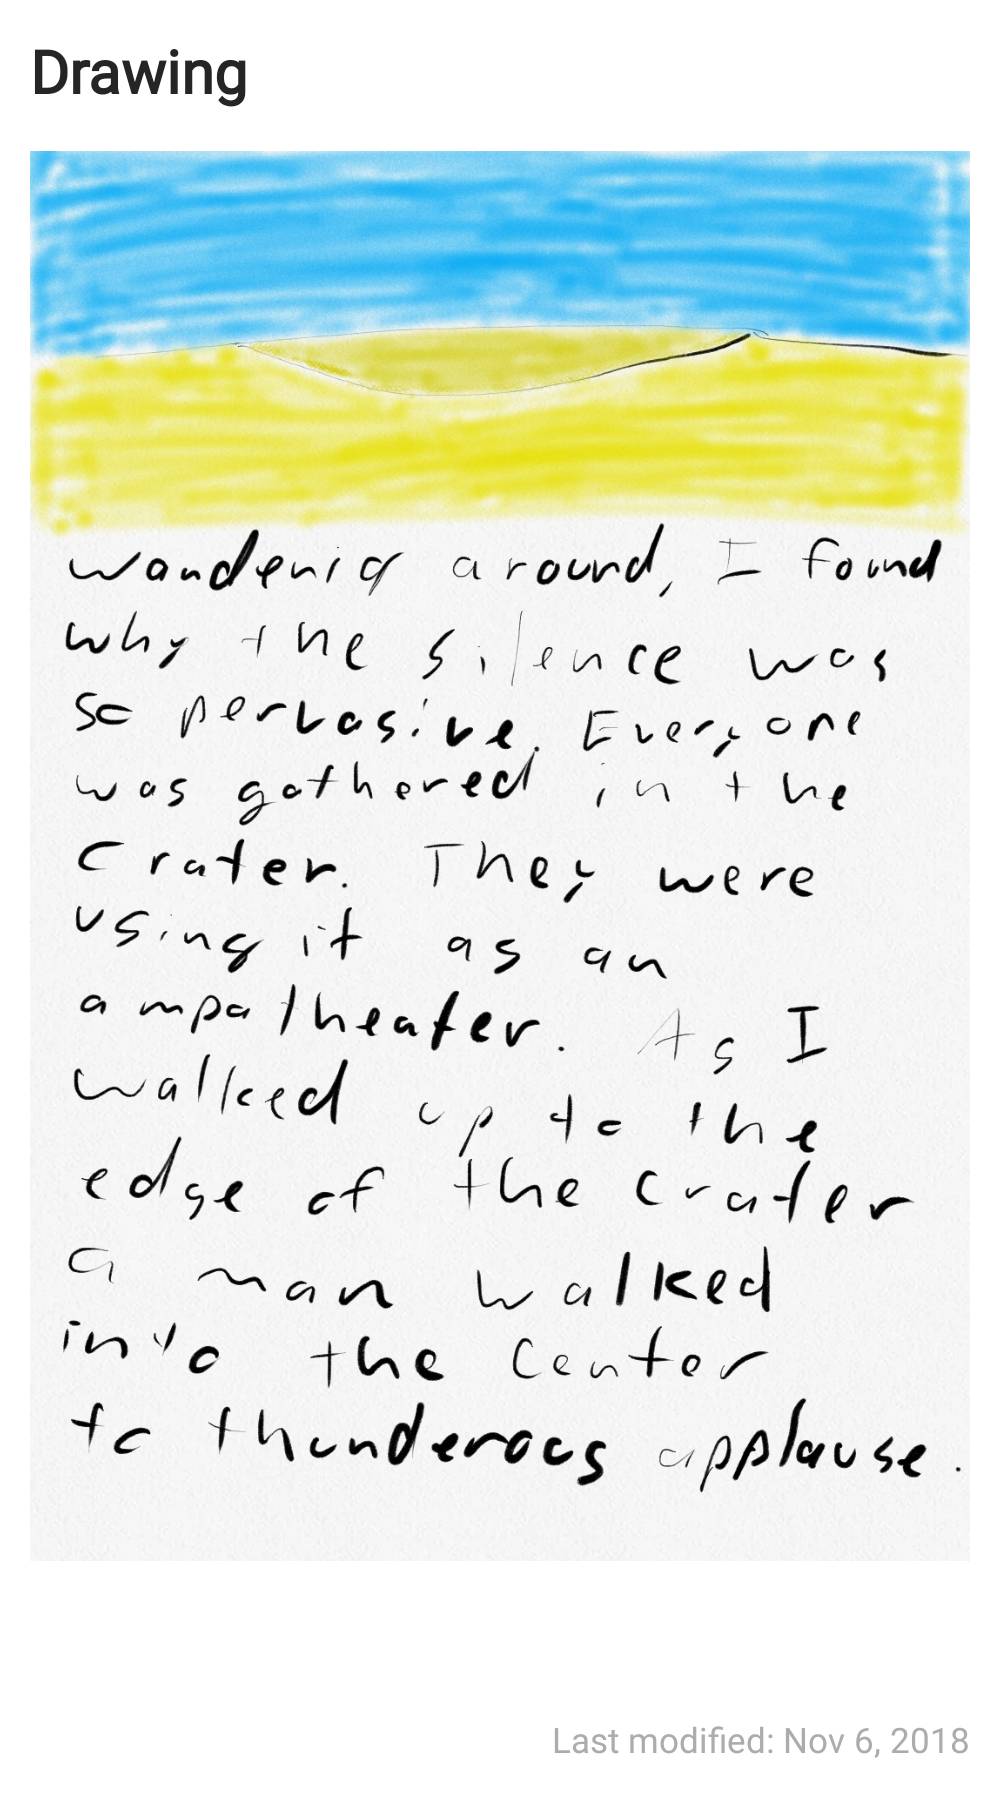 Drawing
wandenig around, I found
why the silence was
so pervasive. Everyone
was gathered in the
Crater. They were
using it as an
ampatheater. As I
walked up to the
edge of the crater
a man walked
into the Center
to thunderous applause.
Last modified: Nov 6, 2018